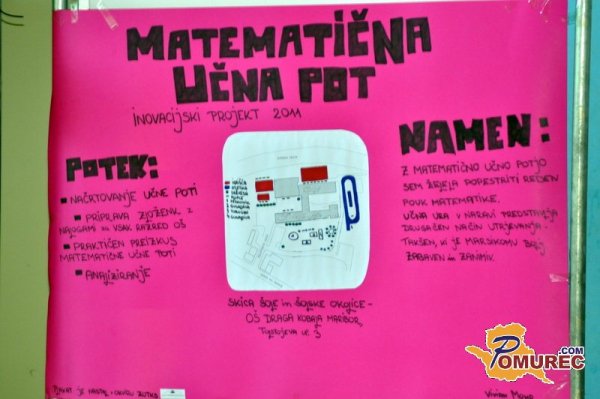 MATEMATIČNA
UČNA POT
INOVACIJSKI PROJEKT 2011
POTEK:
NAČRTOVANJE UČNE POTI
PRIPRAVA ZLOŽENK Z
NALOGAMI ZA VSAK RAZRED OŠ
PRAKTIČEN PREIZKUS
MATEMATIČNE UČNE POTI
ANALIZIRANJE
NAMEN:
Z MATEMATIČNO UČNO POTJO
SEM ŽELELA POPESTRITI REDEN
POUK MATEMATIKE.
UČNA URA V NARAVI PREDSTAVLJA
DRUGAČEN NAČIN UTRJEVANJA
TAKŠEN, KI JE MARSIKOMU BOLJ
ZABAVEN in ZANIMIV.
SKICA ŠOLE in ŠOLSKE OKOLICE -
OŠ DRAGA KOBALA MARIBOR,
Tolstojeva ul. 3
PLAKAT JE NASTAL V OKVIRU
POMUREC.COM